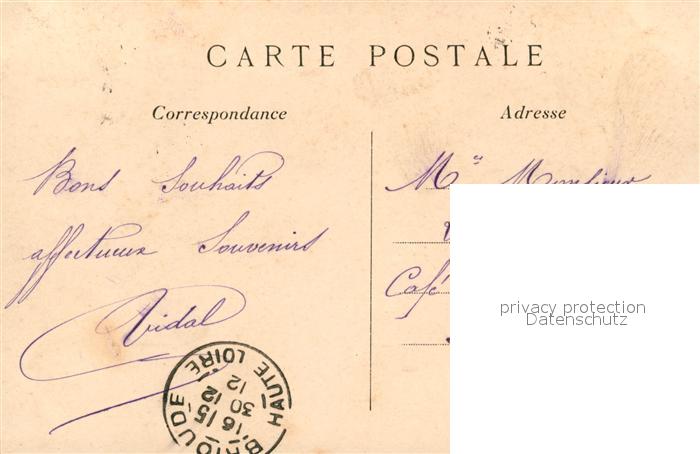 CARTE POSTALE
Correspondance
Adresse
Bons Souhaits
affectueux Souvenirs
Vidal
Café
privacy protection
Datenschutz
HAUTE LOIRE
16 15
30 12
12